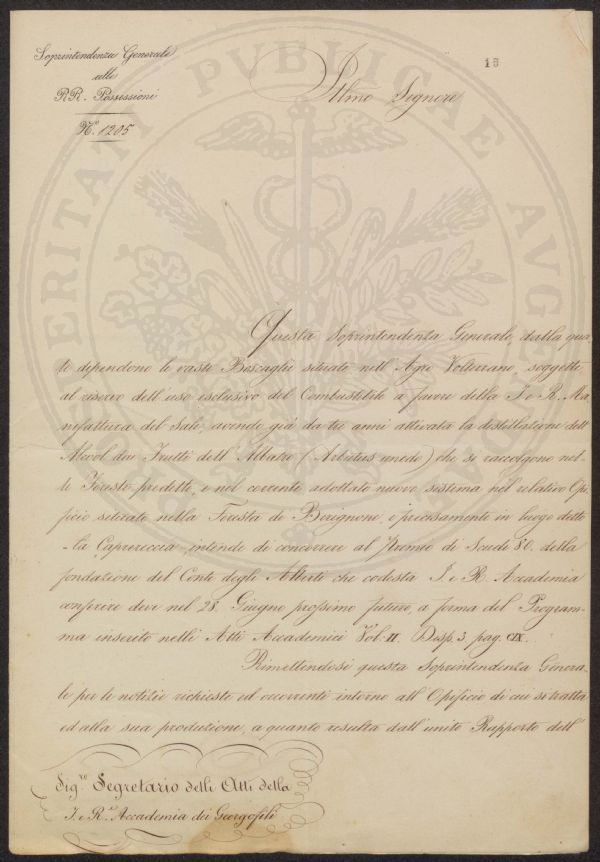 Soprintendenza Generale
alle
RR. Possessioni
N.° 1205
18
Illmo Signore
Questa Soprintendenza Generale, dalla qua-
le dipendono le vaste Boscaglie situate nell'Agro Volterrano, soggette
al riservo dell'uso esclusivo del Combustibile a favore della I. e R. Ma
nifattura del Sale, avendo già da tre anni attivata la distillazione dell'
Alcool dai Frutti dell'Albatro (Arbutus unedo) che si raccolgono nel-
le Foreste predette, e nel corrente adottato nuovo sistema nel relativo Opi
ficio situato nella Foresta di Berignone, e precisamente in luogo detto
la Caprareccia intende di concorrere al Premio di Scudi 80. della
fondazione del Conte degli Alberti che codesta I. e R. Accademia
conferire deve nel 28. Giugno prossimo futuro, a forma del Program-
ma inserito nelli Atti Accademici Vol. II. Disp. 3. pag. CIX.
Rimettendosi questa Soprintendenza Genera-
le per le notizie richieste ed occorrenti intorno all'Opificio di cui si tratta
ed alla sua produzione, a quanto resulta dall'unito Rapporto dell'
Sig.re Segretario delli Atti della
I. e R.e Accademia dei Georgofili
PROSPERITATI PVBLICAE AVGENDAE